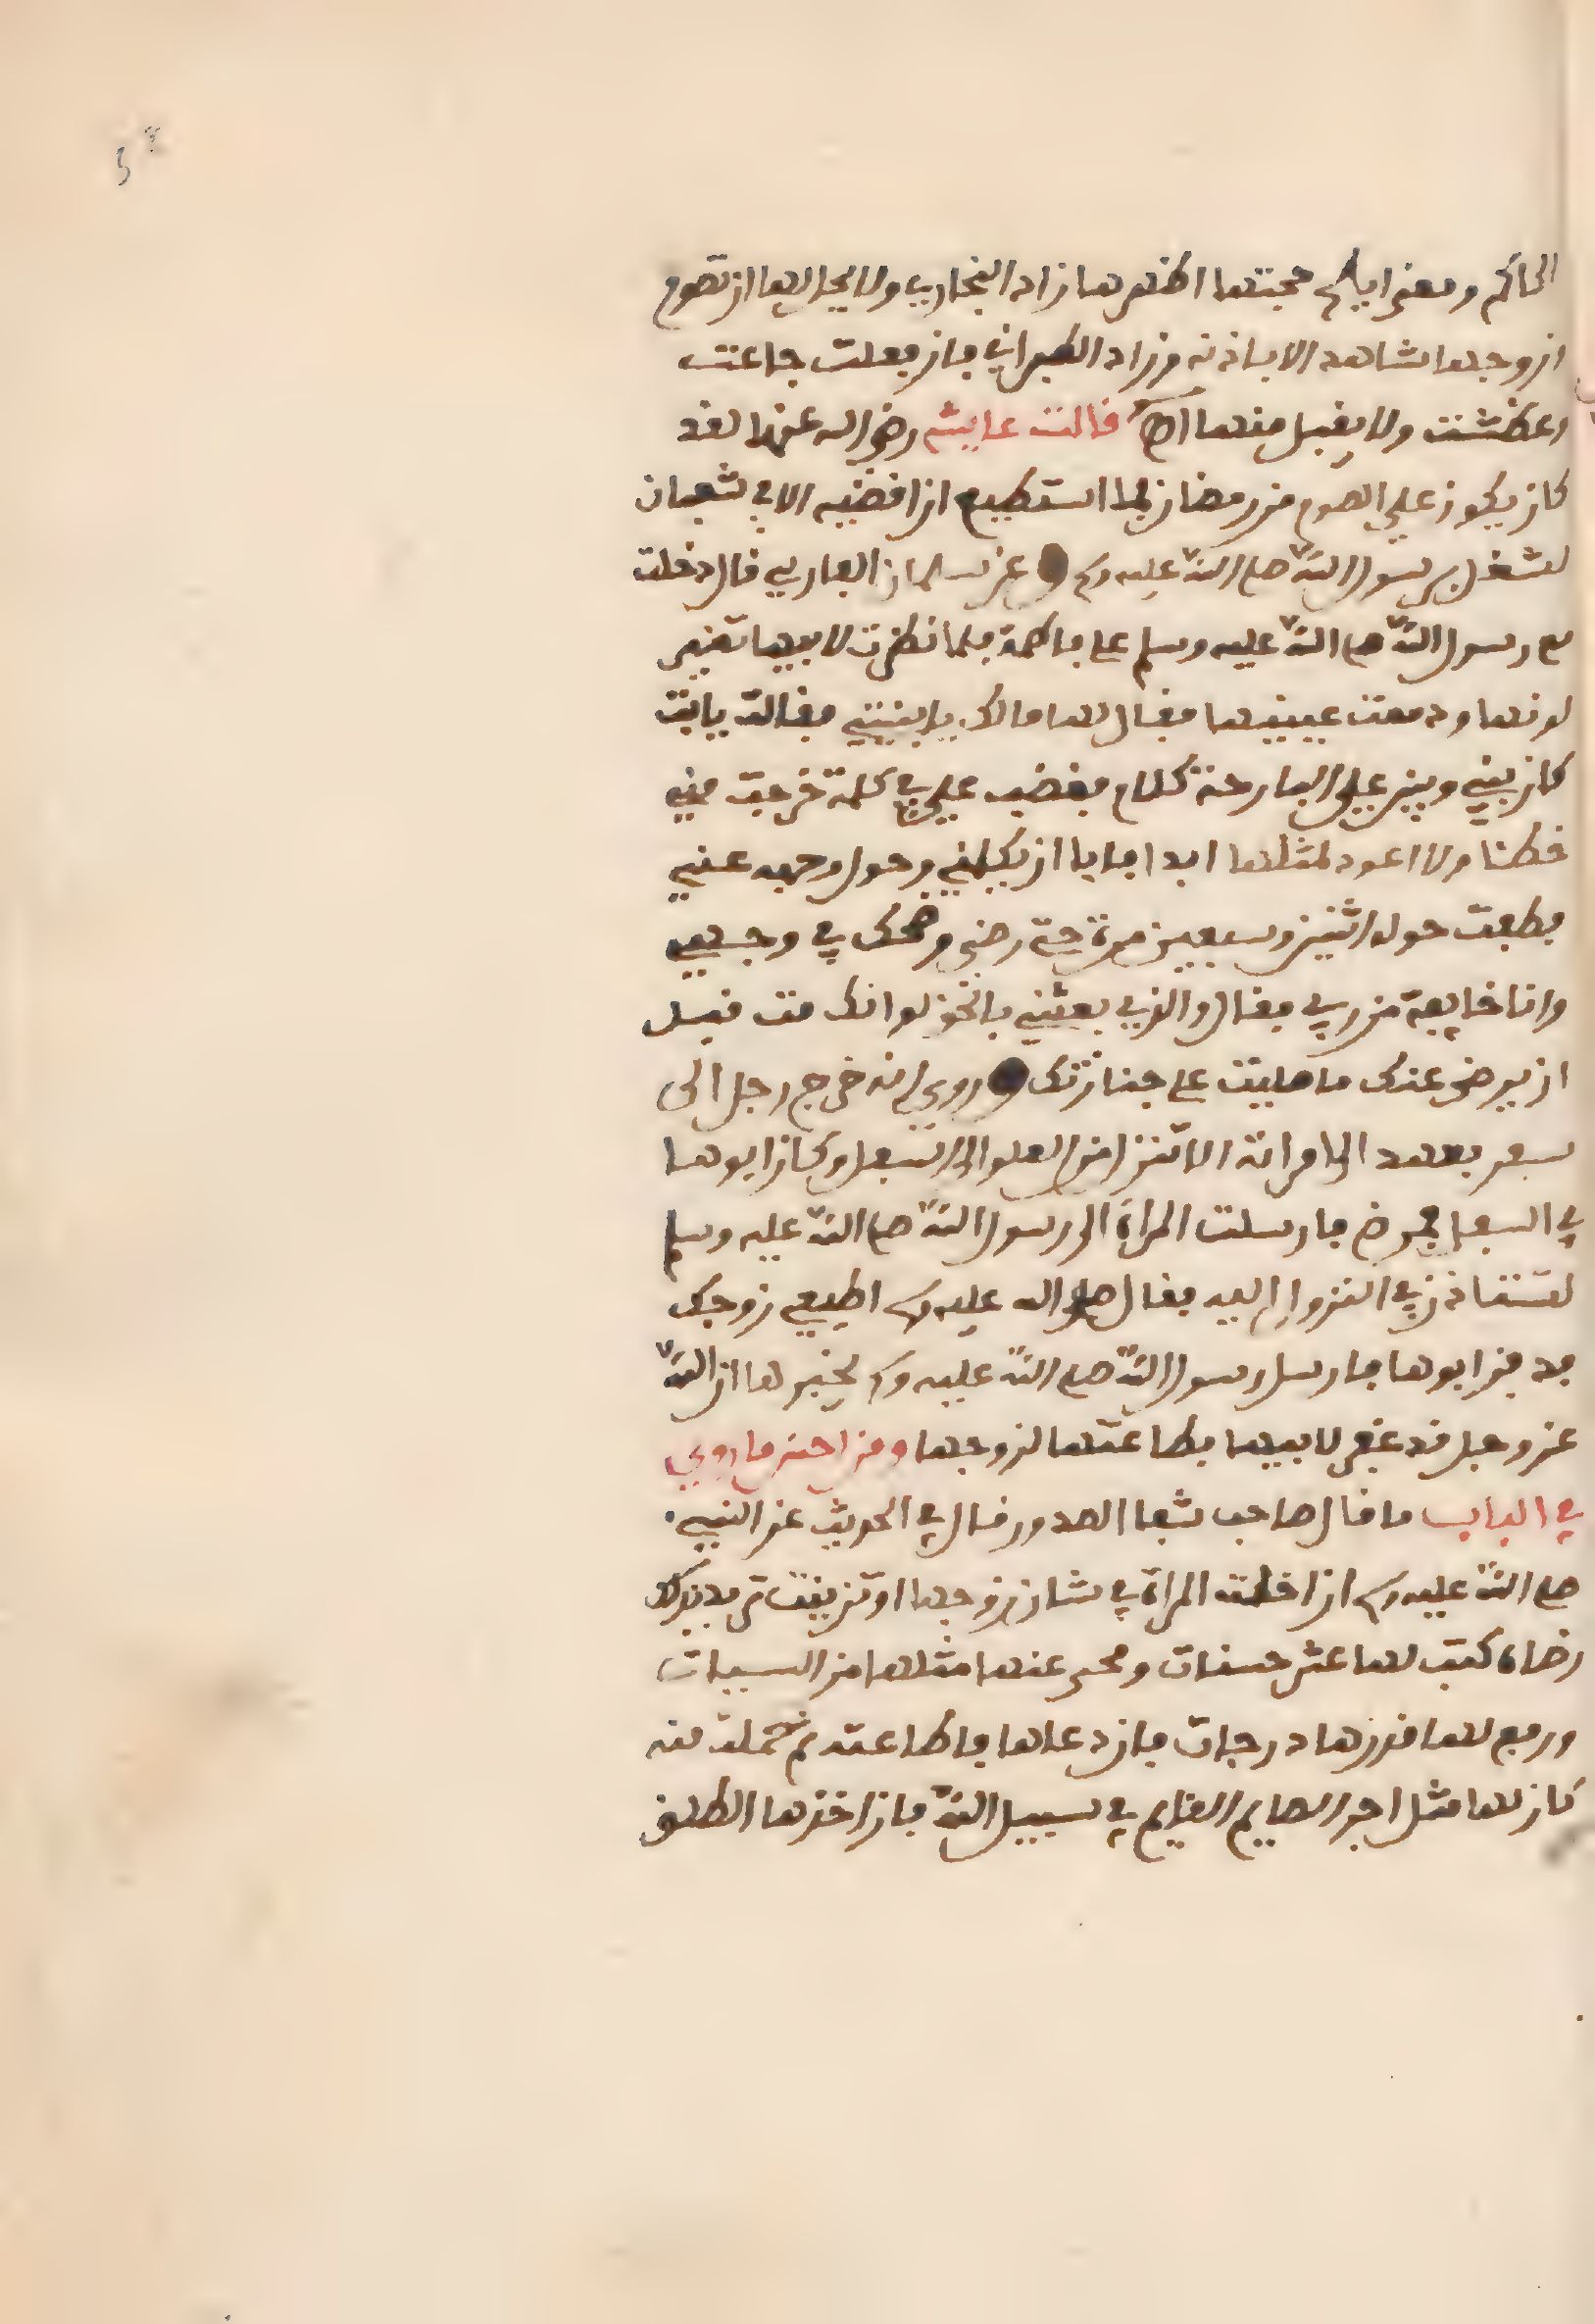 الحاكم ومعنى افلح حجتها اظهرها زاد البخاري ولا يحل لها ان تصوم
ان زوجها شاهد الا باذنه وزاد الطبراني فان فعلت جاعت
وعطشت ولا يقبل منها قالت عايشة رضي الله عنها لقد
كان يكون علي الصوم من رمضان فما استطيع ان اقضيه الا في شعبان
لشغل برسول الله صلى الله عليه وسلم وعن سلمان الفارسي قال دخلت
مع رسول الله صلى الله عليه وسلم على فاطمة فلما نظرت لابيها تغير
لونها ودمعت عيينيها فقال لها مالك يا بنيتي فقالت يا ابت
كان بيني وبين علي البارحة كلام فغضب علي في كلمة خرجت مني
خطئا ولا اعود لمثلها ابدا فابا ان يكلمني وحول وجهه عني
فطفت حوله اثنين وسبعين مرة حتى رضي وضحك في وجهي
وانا خايفة من ربي فقال والذي بعثني بالحق لو انك مت قبل
ان يرضى عنك ما صليت على جنازتك وروي انه خرج رجل الى
سفر بعهد الى امراته الا تنزل من العلو الى السفل وكان ابوها
في السفل فمرض فارسلت المراة الى رسول الله صلى الله عليه وسلم
لتستاذن في النزول اليه فقال صلى الله عليه وسلم اطيعي زوجك
فدفن ابوها فارسل رسول الله صلى الله عليه وسلم يخبرها ان الله
عز وجل قد غفر لابيها بطاعتها لزوجها ومن احسن ما روي
في الباب ما قال صاحب شفا الصدور قال في الحديث عن النبي
صلى الله عليه وسلم اذا قامت المراة في شان زوجها او تزينت تريد بذلك
رضاه كتب لها عشر حسنات ومحي عنها مثلها من السييات
ورفع لها قدرها درجات فان دعاها فاطاعته ثم حملت منه
كان لها مثل اجر الصايم القايم في سبيل الله فان اخذها الطلق